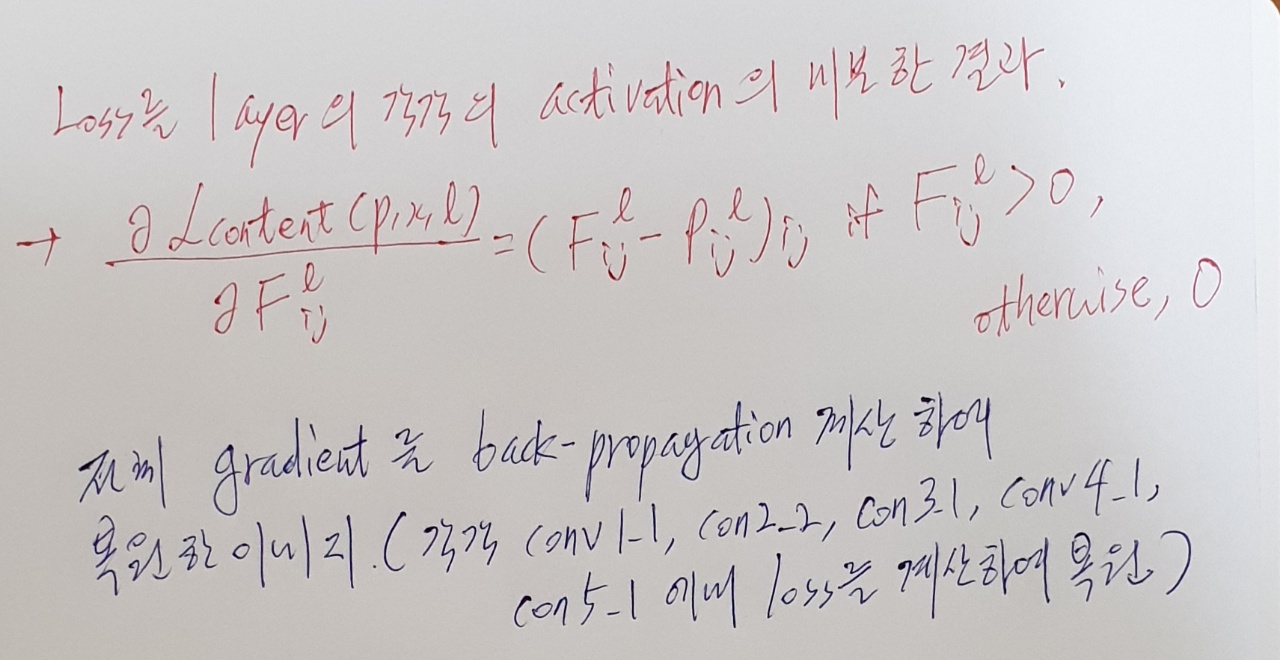 Loss를 layer의 각각의 activation의 미분한 결과.
→ ∂Lcontent(p,x,l) / ∂F^l_ij = (F^l_ij - P^l_ij)ij if F^l_ij > 0,
otherwise, 0
전체 gradient를 back-propagation 계산하여
복원한 이미지. (각각 conv1-1, con2-2, con3-1, conv4-1,
con5-1 에서 loss를 계산하여 복원)